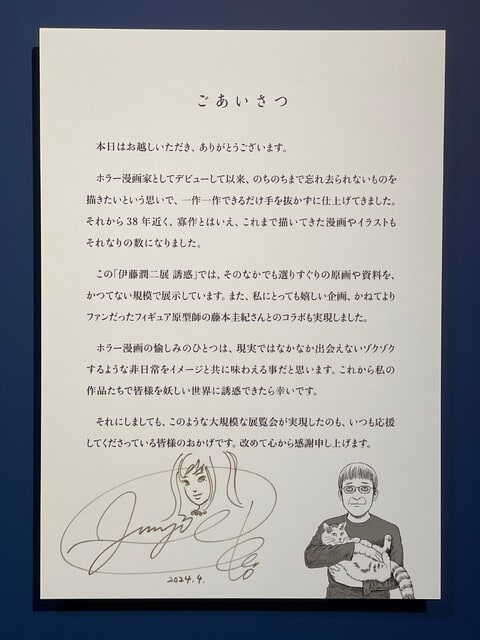 ごあいさつ
本日はお越しいただき、ありがとうございます。
ホラー漫画家としてデビューして以来、のちのちまで忘れ去られないものを
描きたいという思いで、一作一作できるだけ手を抜かずに仕上げてきました。
それから38年近く、寡作とはいえ、これまで描いてきた漫画やイラストも
それなりの数になりました。
この「伊藤潤二展 誘惑」では、そのなかでも選りすぐりの原画や資料を、
かつてない規模で展示しています。また、私にとっても嬉しい企画、かねてより
ファンだったフィギュア原型師の藤本圭紀さんとのコラボも実現しました。
ホラー漫画の愉しみのひとつは、現実ではなかなか出会えないゾクゾク
するような非日常をイメージと共に味わえる事だと思います。これから私の
作品たちで皆様を妖しい世界に誘惑できたら幸いです。
それにしましても、このような大規模な展覧会が実現したのも、いつも応援
してくださっている皆様のおかげです。改めて心から感謝申し上げます。
Junji Ito
2024.4.